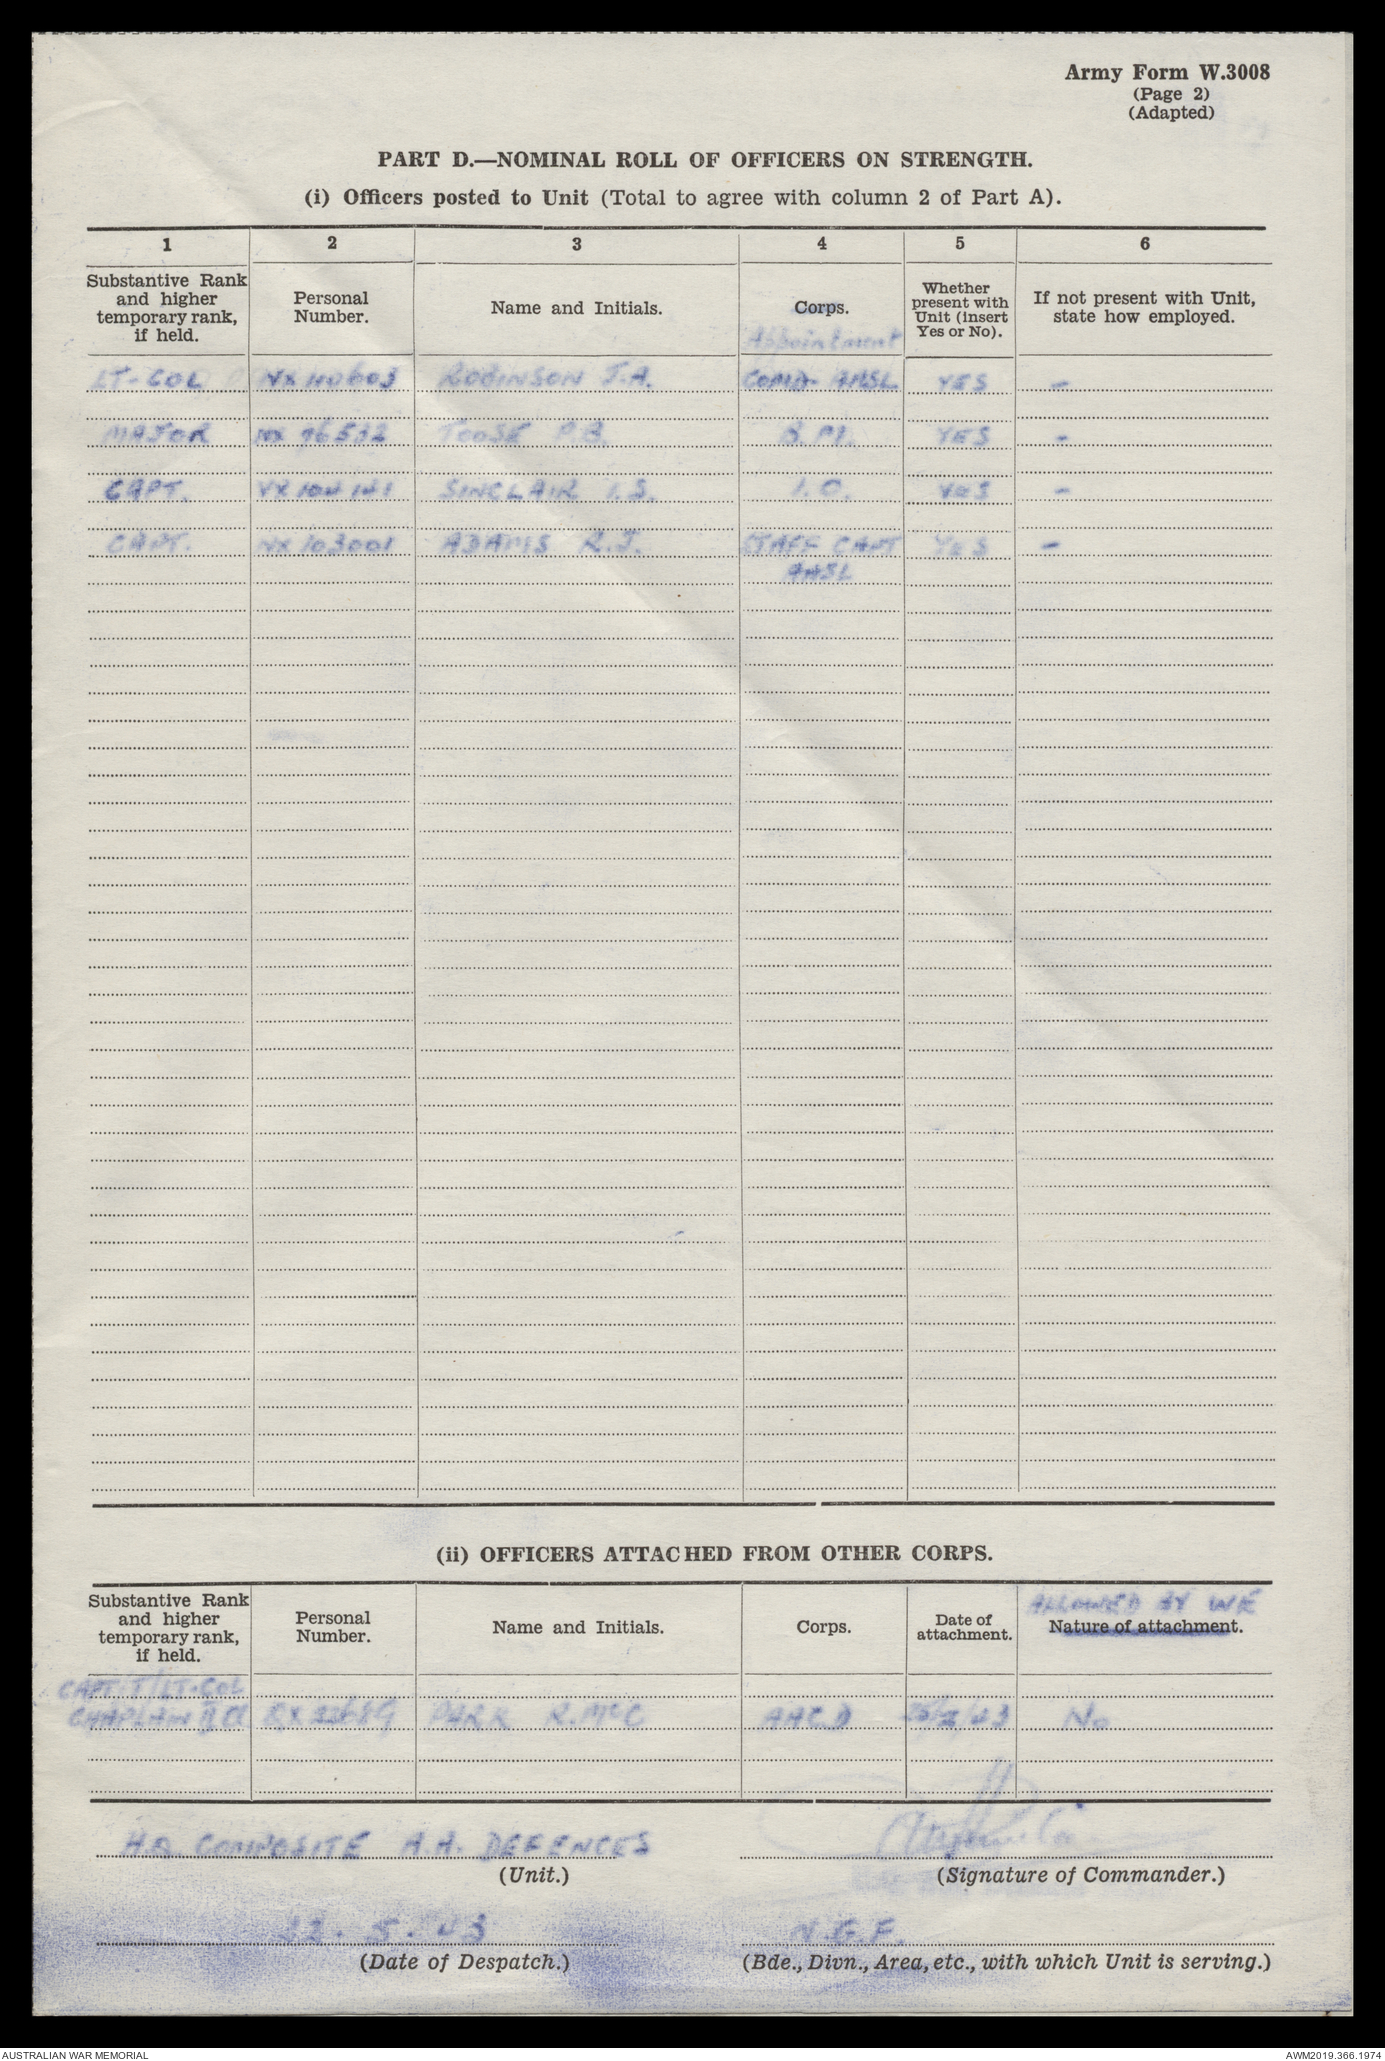 Army Form W.3008
(Page 2)
(Adapted)
PART D.—NOMINAL ROLL OF OFFICERS ON STRENGTH.
(i) Officers posted to Unit (Total to agree with column 2 of Part A).
1 2 3 4 5 6
Substantive Rank and higher temporary rank, if held. Personal Number. Name and Initials. Corps. Appointment Whether present with Unit (insert Yes or No). If not present with Unit, state how employed.
LT-COL NX110603 ROBINSON J.A. COMD- AASL YES -
MAJOR NX 76532 TOOSE P.B. B.M. YES -
CAPT. VX104141 SINCLAIR I.S. I.O. YES -
CAPT. NX103001 ADAMS R.J. STAFF CAPT YES -
AASL
(ii) OFFICERS ATTACHED FROM OTHER CORPS.
Substantive Rank and higher temporary rank, if held. Personal Number. Name and Initials. Corps. Date of attachment. ALLOWED BY WE Nature of attachment.
CAPT T/LT-COL
CHAPLAIN R. McC AACD No
H.Q COMPOSITE A.A. DEFENCES
(Unit.) (Signature of Commander.)
22. 5. 43 N.G.F.
(Date of Despatch.) (Bde., Divn., Area, etc., with which Unit is serving.)
AUSTRALIAN WAR MEMORIAL AWM2019.366.1974